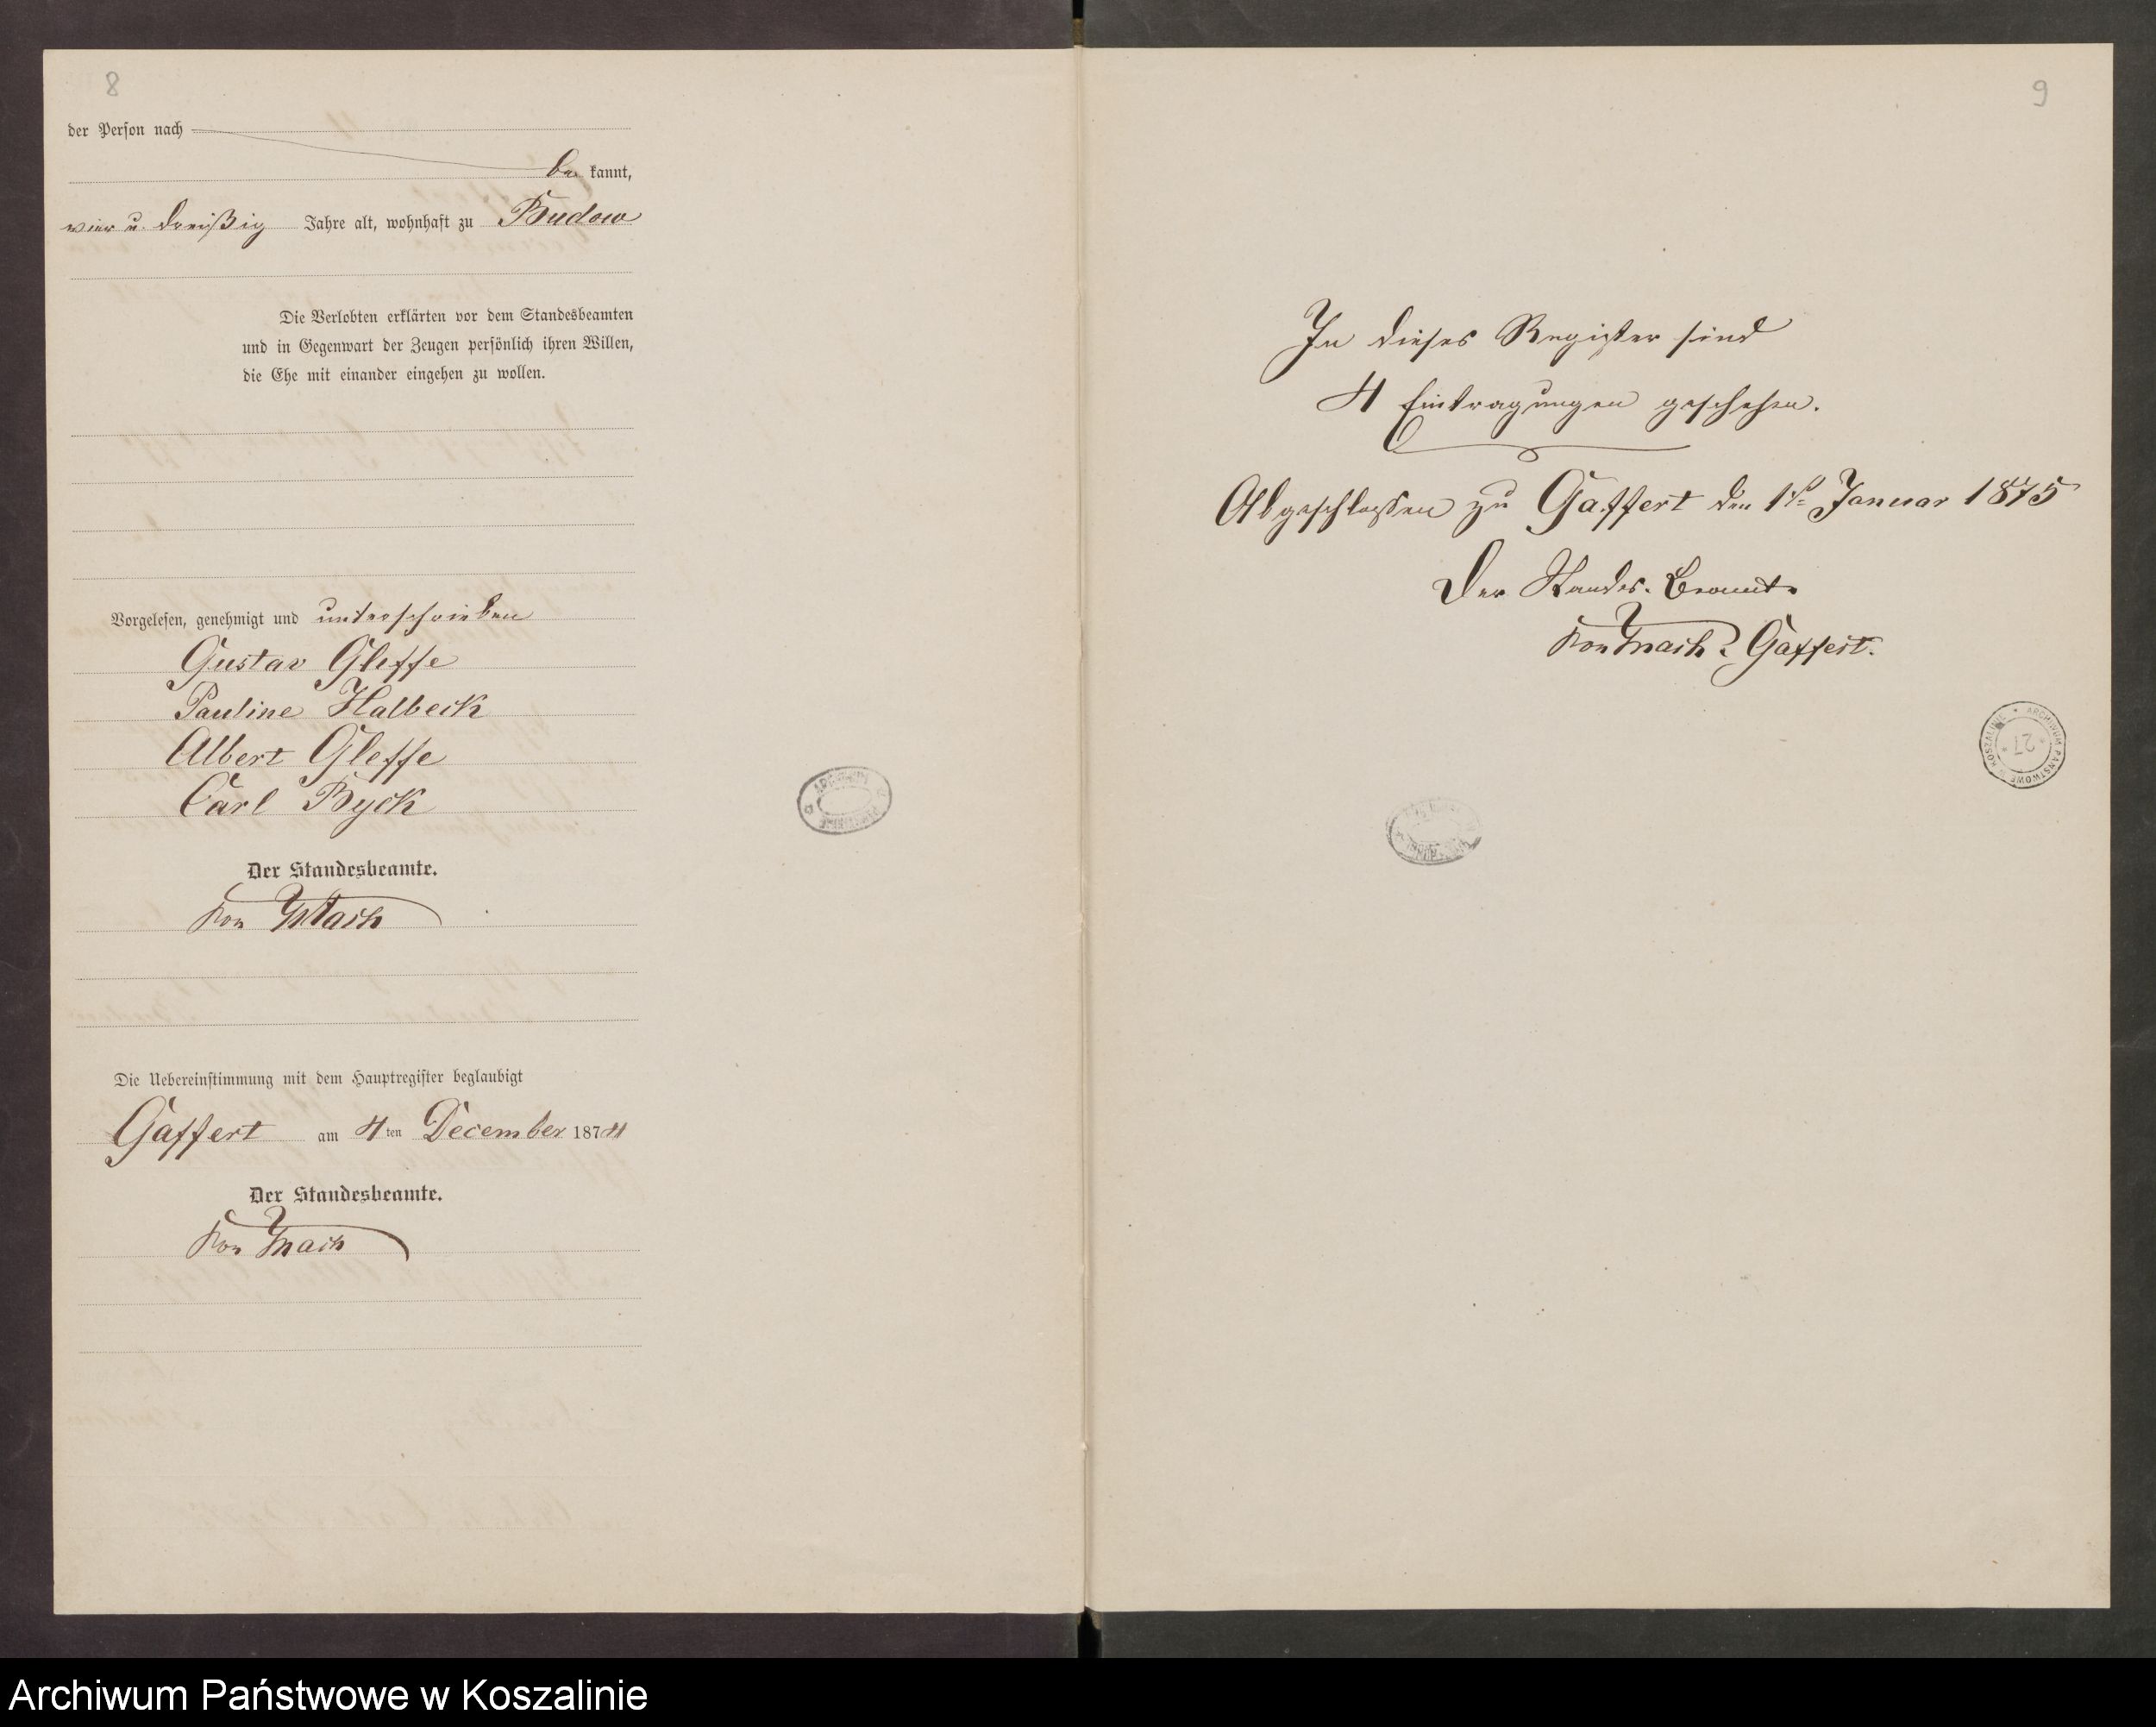 8
der Person nach
be kannt,
vier u. dreißig Jahre alt, wohnhaft zu Budow
Die Verlobten erklärten vor dem Standesbeamten
und in Gegenwart der Zeugen persönlich ihren Willen,
die Ehe mit einander eingehen zu wollen.
Vorgelesen, genehmigt und unterschrieben
Gustav Gleffe
Pauline Halbeck
Albert Gleffe
Carl Byck
Der Standesbeamte.
von Mach
Die Uebereinstimmung mit dem Hauptregister beglaubigt
Gaffert am 4ten December 1874
Der Standesbeamte.
von Mach
9
In dieses Register sind
4 Eintragungen geschehen.
Abgeschlossen zu Gaffert den 1t Januar 1875
Der Standes-Beamte
von Mach Gaffert.
ARCHIWUM PAŃSTWOWE W KOSZALINIE
27
Archiwum Państwowe w Koszalinie